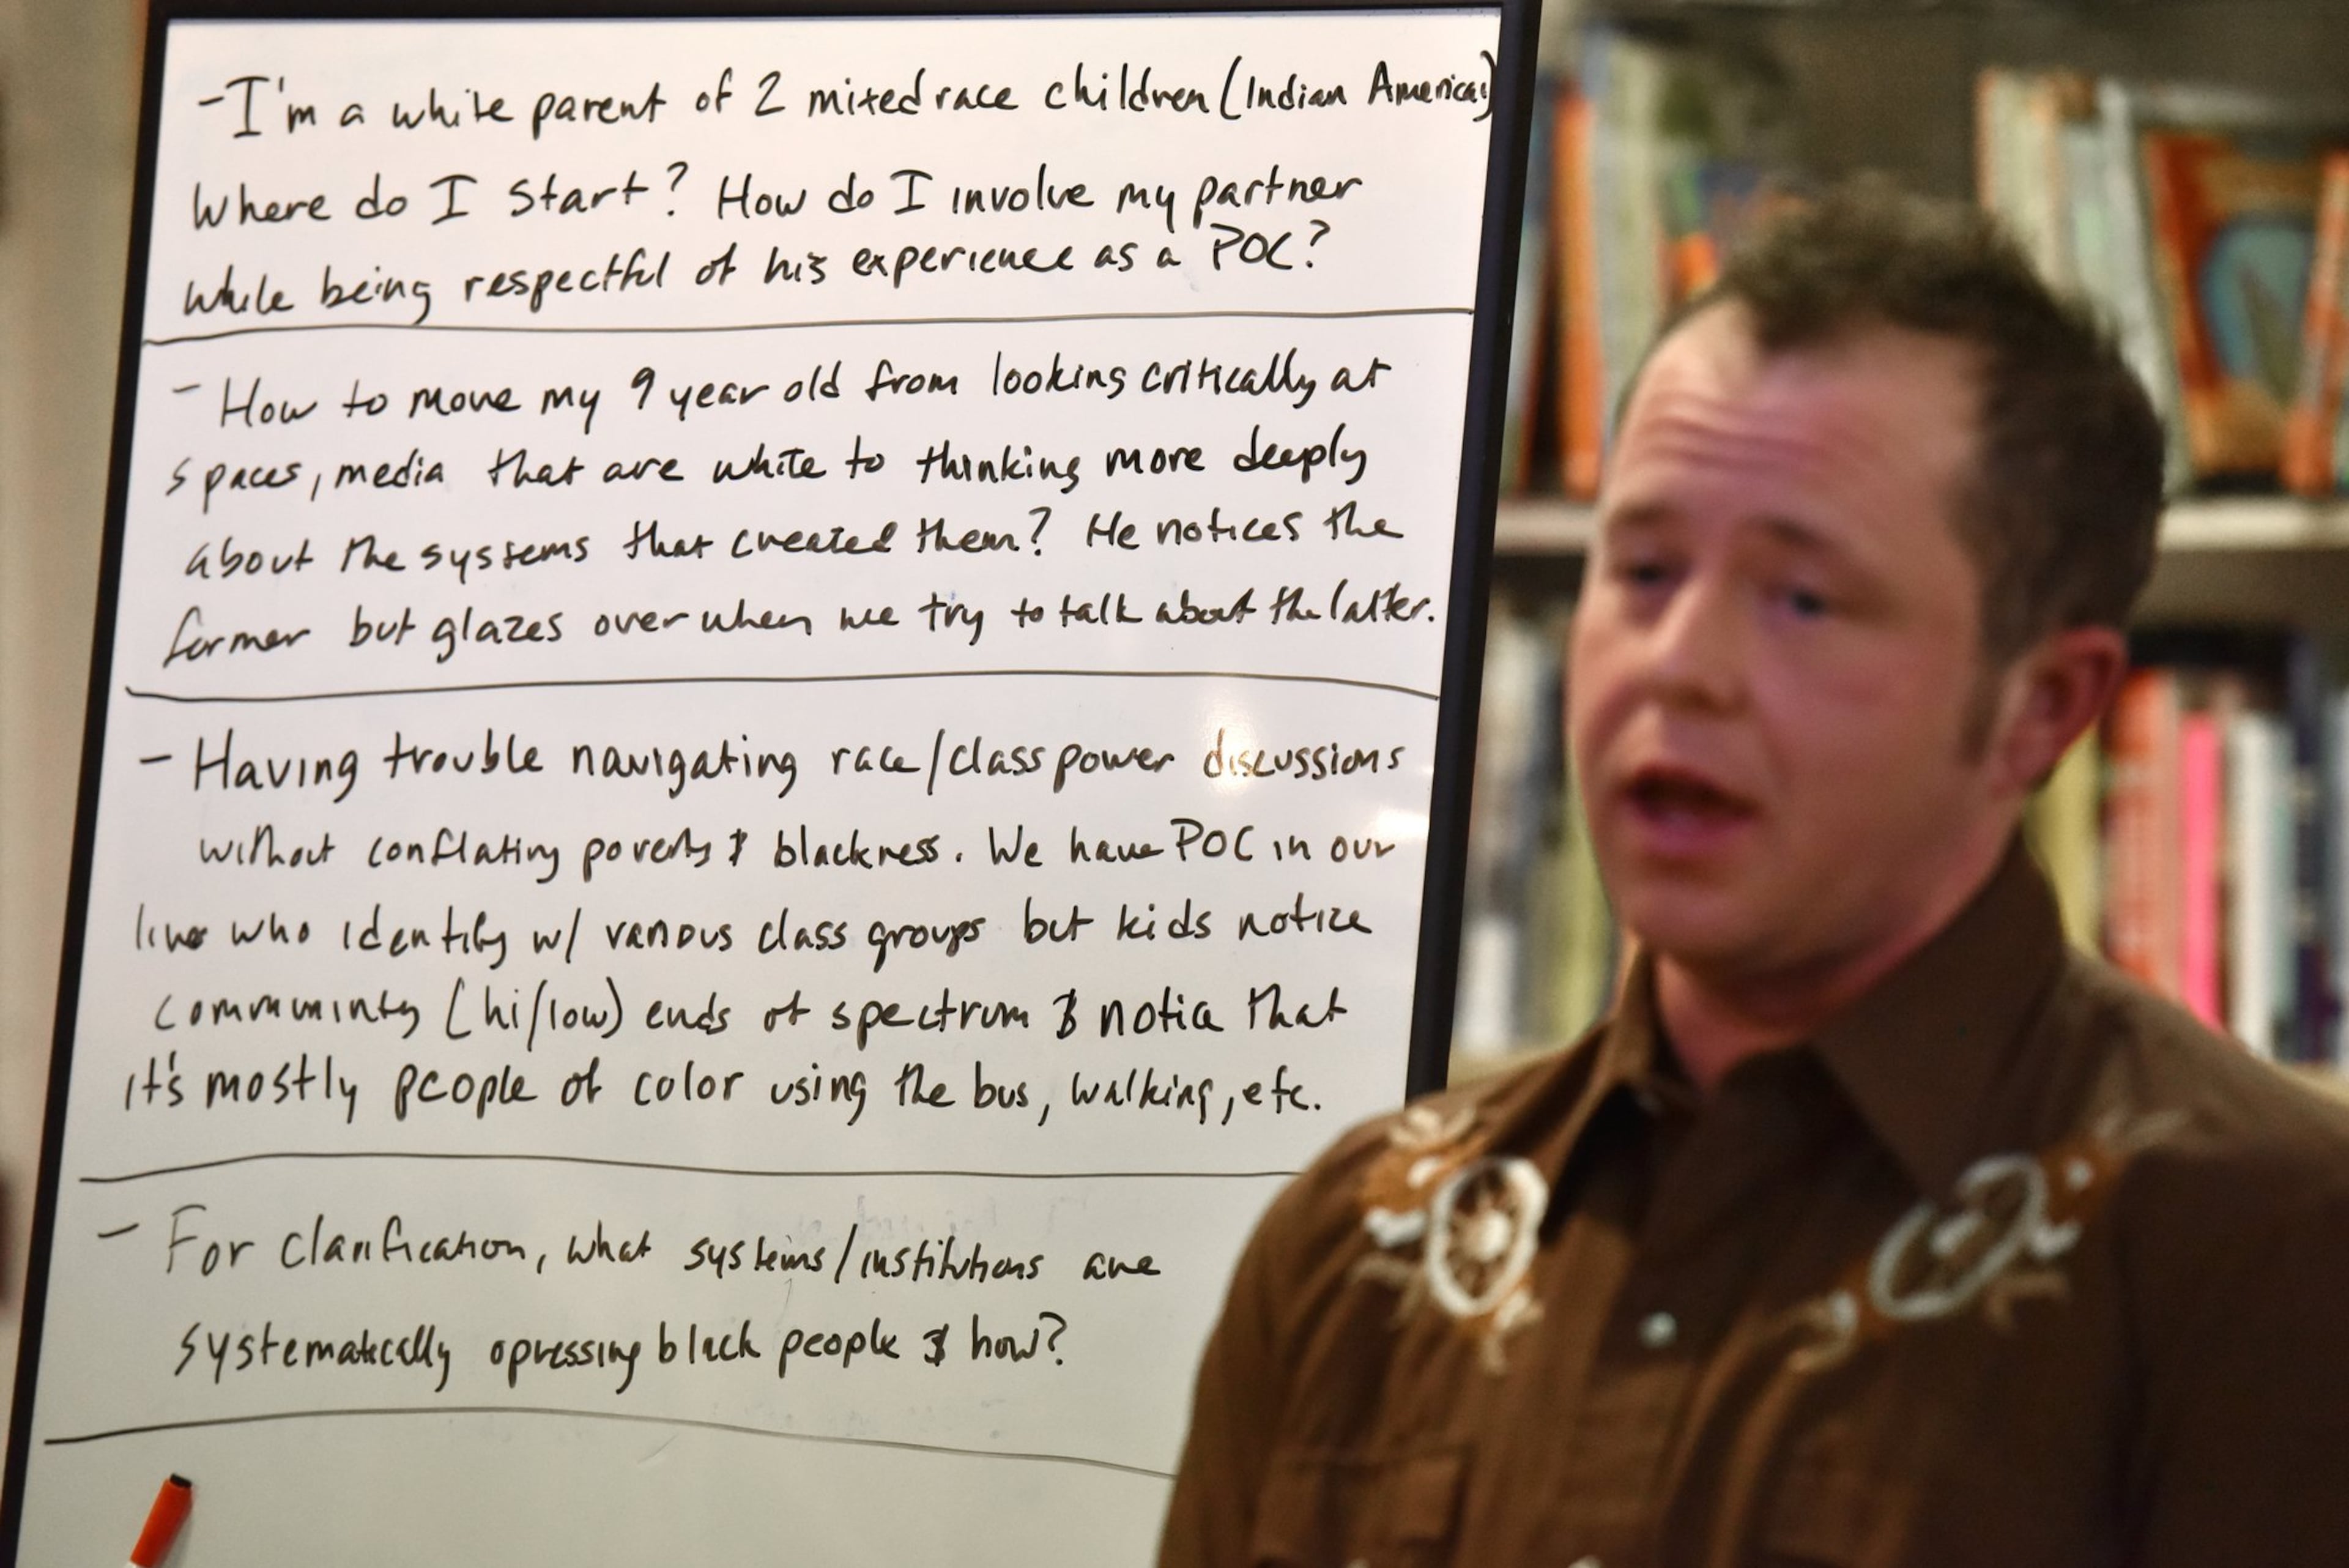 - I'm a white parent of 2 mixed race children (Indian American)
Where do I start? How do I involve my partner
while being respectful of his experience as a POC?
- How to move my 9 year old from looking critically at
spaces, media that are white to thinking more deeply
about the systems that created them? He notices the
former but glazes over when we try to talk about the latter.
- Having trouble navigating race/class power discussions
without conflating poverty & blackness. We have POC in our
live who identify w/ various class groups but kids notice
(hi/low) ends of spectrum & notice that
it's mostly people of color using the bus, walking, etc.
- For clarification, what systems/institutions are
systematically opressing black people & how?